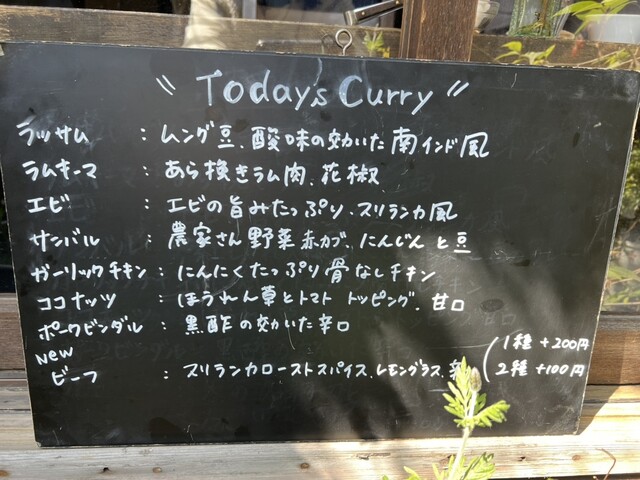 "Today's Curry"
ラッサム : ムング豆、酸味の効いた南インド風
ラムキーマ : あら挽きラム肉、花椒
エビ : エビの旨みたっぷり、スリランカ風
サンバル : 農家さん野菜赤カブ、にんじんと豆
ガーリックチキン : にんにくたっぷり骨なしチキン
ココナッツ : ほうれん草とトマトトッピング、甘口
ポークビンダル : 黒酢の効いた辛口
New
ビーフ : スリランカローストスパイス、レモングラス、
1種 +200円
2種 +100円